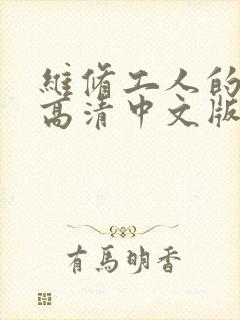 维脩工人的
高清中文版
有馬明香